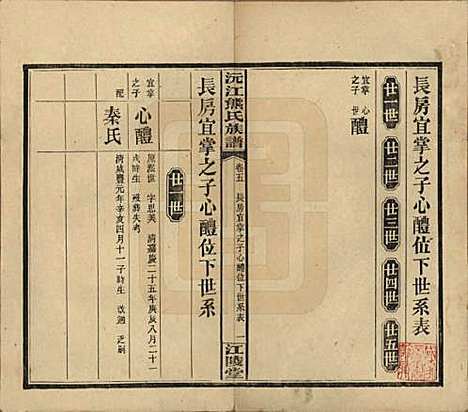 長房宜掌之子心醴位下世系表
廿一世
廿二世
廿三世
廿四世
廿五世
宜掌之子
心醴
沅江熊氏族譜
卷五
長房宜掌之子心醴位下世系表
一
江陵堂
長房宜掌之子心醴位下世系
廿一世
宜掌之子
心醴
原派世 字思美 清嘉慶二十五年庚辰八月二十一
戌時生 歿葬失考
配
秦氏
清咸豐元年辛亥四月十一子時生 改適 乏嗣